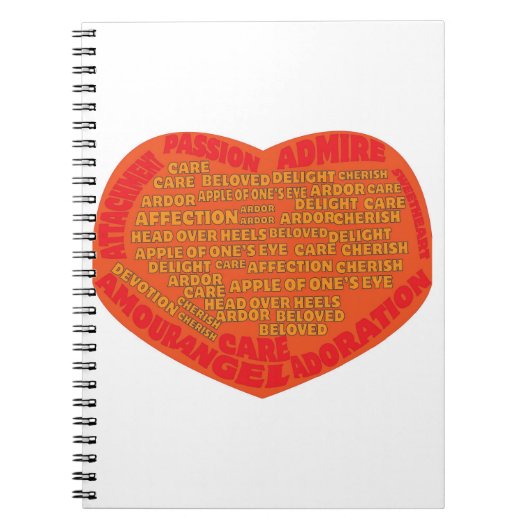 PASSION ADMIRE
ATTACHMENT
SWEETHEART
CARE
CARE BELOVED DELIGHT CHERISH
ARDOR APPLE OF ONE'S EYE ARDOR CARE
ARDOR DELIGHT CARE
AFFECTION ARDOR ARDOR CHERISH
HEAD OVER HEELS BELOVED DELIGHT
APPLE OF ONE'S EYE CARE CHERISH
DELIGHT CARE AFFECTION CHERISH
ARDOR APPLE OF ONE'S EYE
CARE
DEVOTION
CHERISH HEAD OVER HEELS
CHERISH ARDOR BELOVED
BELOVED
AMOUR ANGEL CARE ADORATION